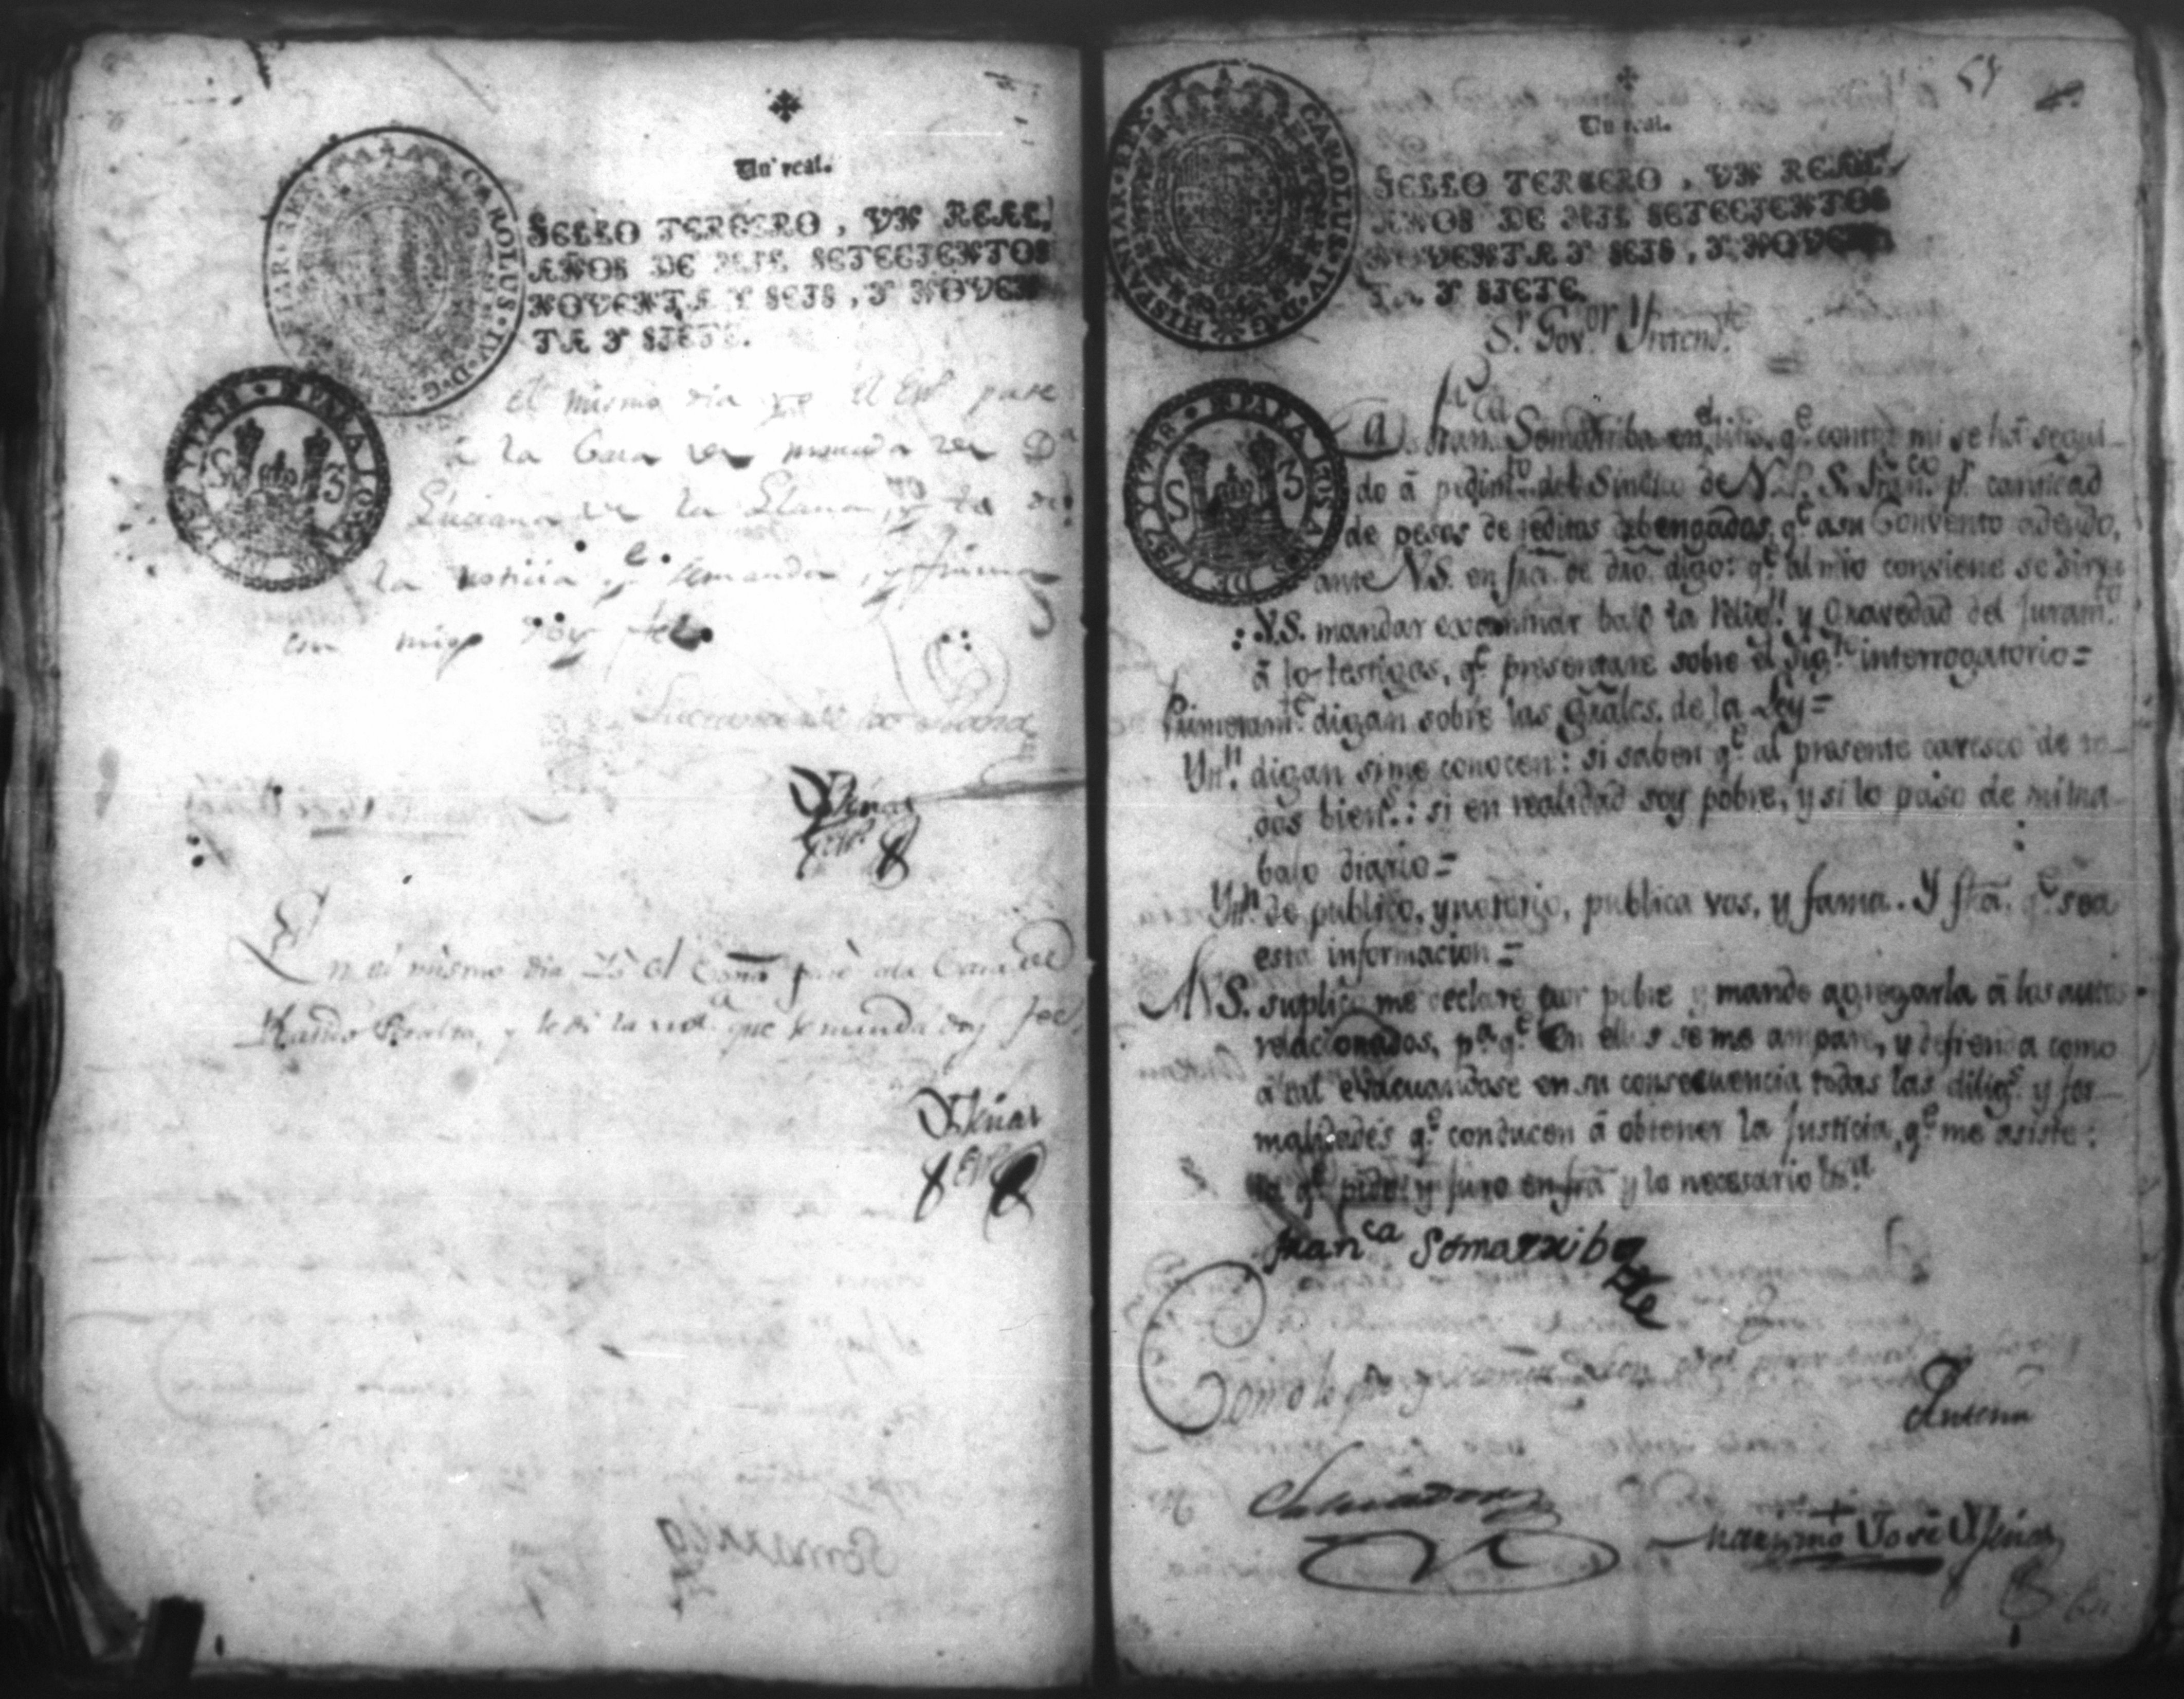 Un real.
SELLO TERCERO, VN REAL,
AÑOS DE MIL SETECIENTOS
NOVENTA Y SEIS, Y NOVEN
TA Y SIETE.
CAROLUS·IV·D·G
PARA LOS
el mismo dia yo el Esno pase
à la Casa de morada de Da
Luciana de la Llana, y la di
la noticia qe se manda, y firma
con migo doy fee
Luciana de la Llana
En el mismo dia Yo el pasè a la Casa de
Peralta, y le di la nota que se manda doy fee.
Un real.
SELLO TERCERO, VN REAL,
AÑOS DE MIL SETECIENTOS
NOVENTA Y SEIS, Y NOVEN
TA Y SIETE.
CAROLUS·IV·D·G·HISPANIAR·REX·
PARA LOS AÑOS DE 1797 Y 1798
S 3
Sr. Govor. Yntendte.
Da. Franca. Somarriba en el litis, qe. contra mi se hà segui-
do â pedimto. del Sindico de N. P. S. Franco. pr. cantidad
de pesos de reditos debengados, qe. a su Convento adeudo,
ante V.S. en fra. de dro. digo: qe. al mio conviene se sirva
V.S. mandar examinar bajo la Relign. y Gravedad del Juramto.
â los testigos, qe. presentare sobre el sigte. interrogatorio=
Primeramte. digan sobre las Grales. de la Ley=
Ytn. digan si me conocen: si saben qe. al presente caresco de to-
dos biens.: si en realidad soy pobre, y si lo paso de mi tra-
bajo diario=
Ytn. de publico, y notorio, publica vos, y fama. Y fha. qe. sea
esta informacion=
A V.S. suplico me declare por pobre y mande agregarla â los autos
relacionados, pa. qe. en ellos se me ampare, y defienda como
â tal evacuandose en su consecuencia todas las diligs. y for-
malidades qe. conducen â obtener la Justicia, qe. me asiste:
la qe. pido, y juro en fra y lo necesario
Franca Somarriba
Como lo pide y
Antemi
Mariano José